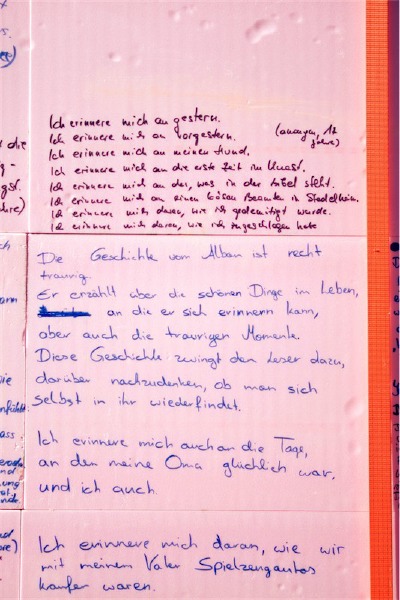 Ich erinnere mich an gestern.
Ich erinnere mich an vorgestern.
(anonym, 17
Jahre)
Ich erinnere mich an meinen Hund.
Ich erinnere mich an die erste Zeit im Knast.
Ich erinnere mich an das, was in der Bibel steht.
Ich erinnere mich an einen bösen Beamten in Stadelheim.
Ich erinnere mich daran, wie ich gedemütigt wurde.
Ich erinnere mich daran, wie ich zugeschlagen habe
Die Geschichte vom Alban ist recht
traurig.
Er erzählt über die schönen Dinge im Leben,
an die er sich erinnern kann,
aber auch die traurigen Momente.
Diese Geschichte zwingt den Leser dazu,
darüber nachzudenken, ob man sich
selbst in ihr wiederfindet.
Ich erinnere mich auch an die Tage,
an den meine Oma glücklich war,
und ich auch.
Ich erinnere mich daran, wie wir
mit meinem Vater Spielzeugautos
kaufen waren.